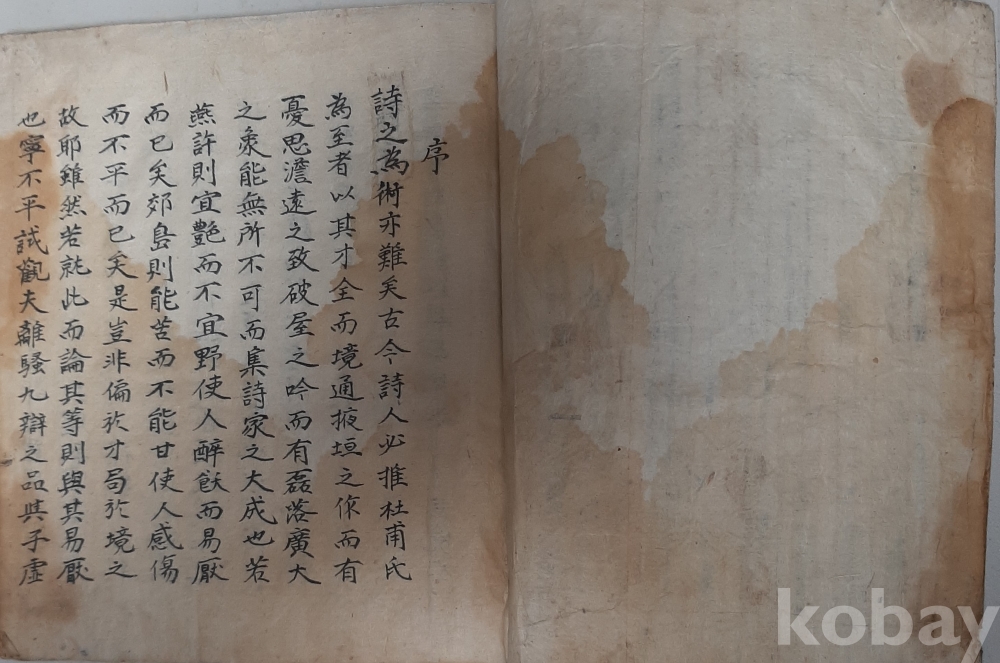 序
詩之為術亦難矣古今詩人必推杜甫氏
為至者以其才全而境通掖垣之作而有
憂思澹遠之致破屋之吟而有磊落廣大
之象能無所不可而集詩家之大成也若
燕許則宜艶而不宜野使人醉飫而易厭
而已矣郊島則能苦而不能甘使人感傷
而不平而已矣是豈非偏於才局於境之
故耶雖然若就此而論其等則與其易厭
也寧不平試觀夫離騷九辯之品與子虛
kobay